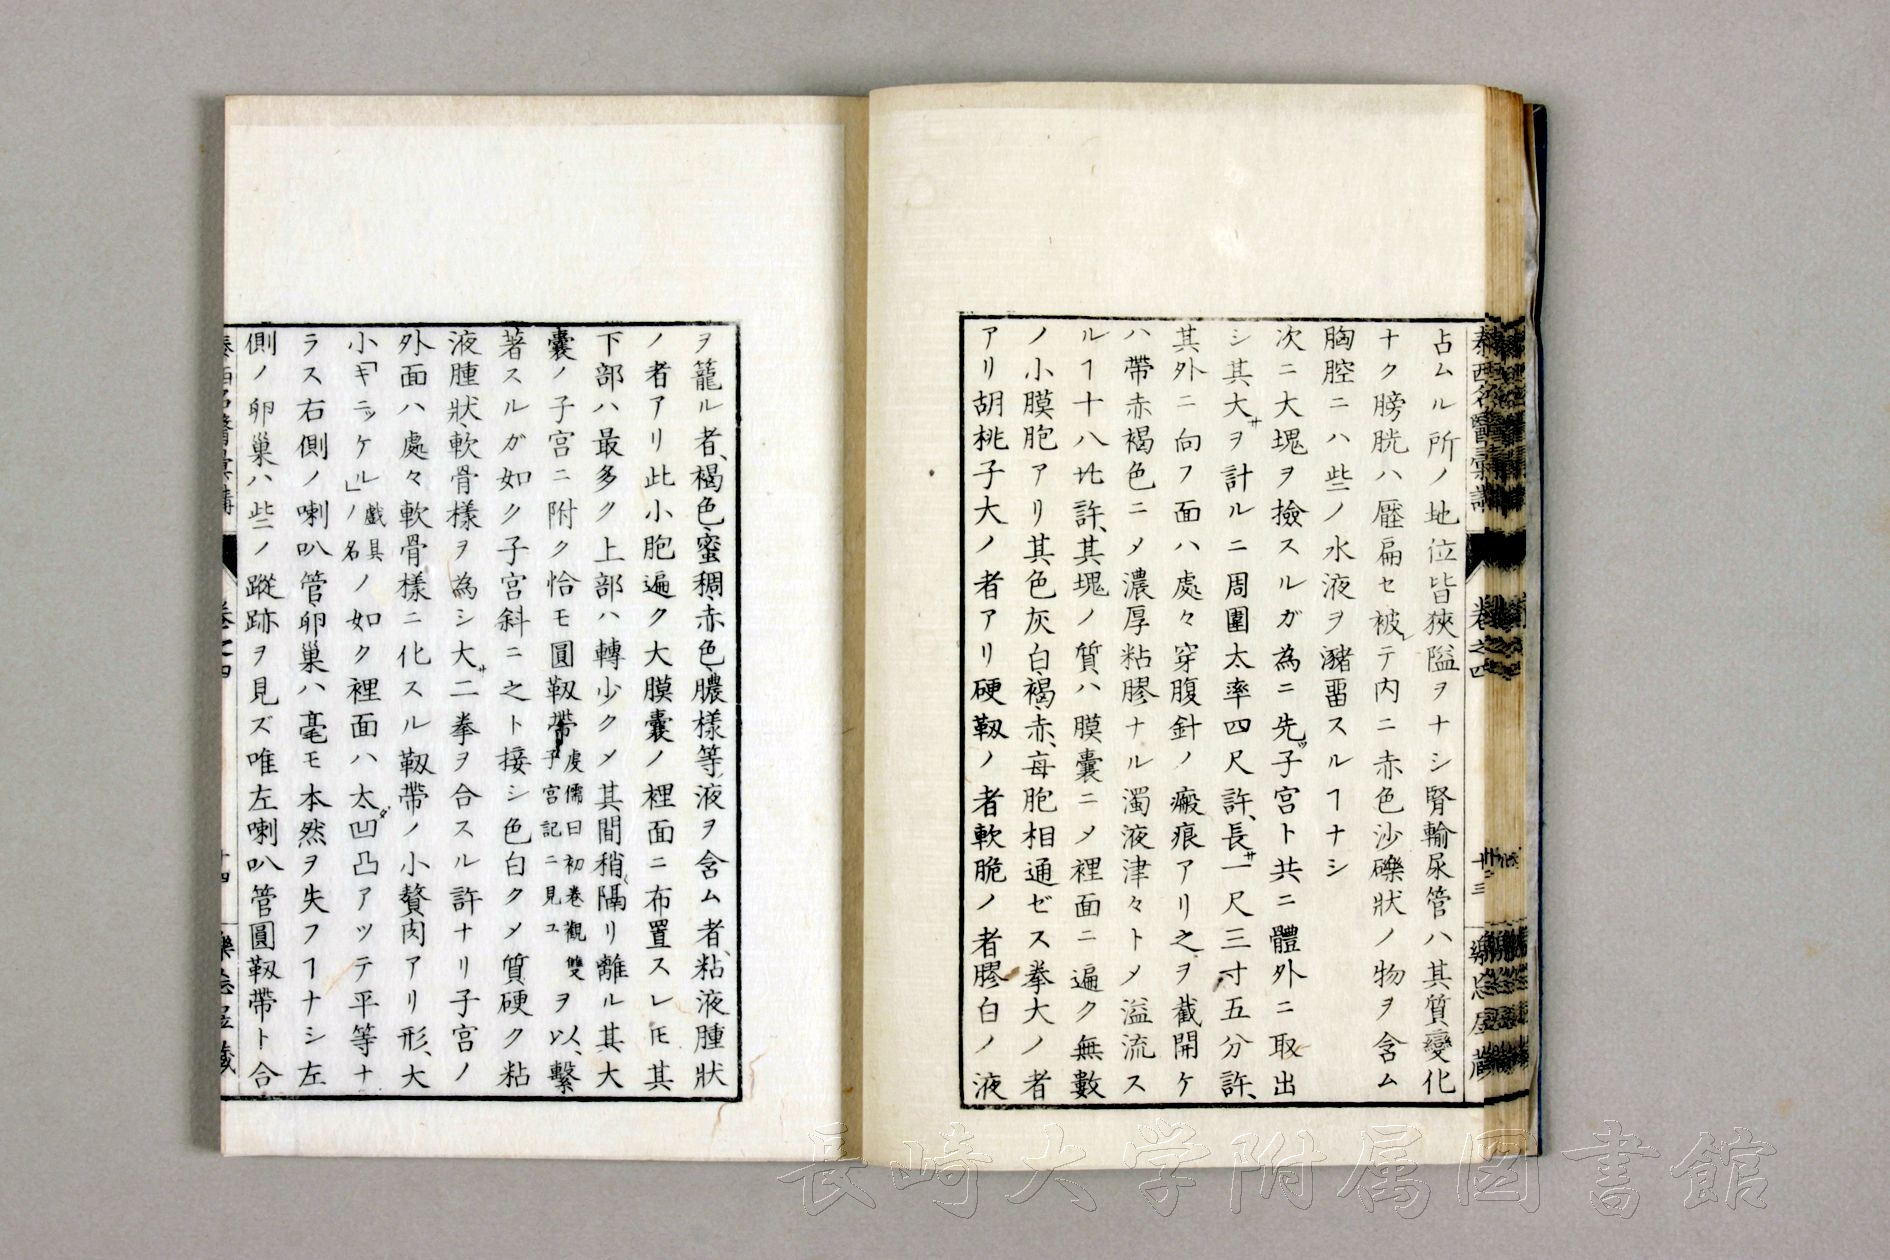 泰西名醫彙講
卷之四
占ムル所ノ地位皆狹隘ヲナシ腎輸尿管ハ其質變化
ナク膀胱ハ壓扁セ被レテ内ニ赤色沙礫狀ノ物ヲ含ム
胸腔ニハ些ノ水液ヲ瀦畱スルヿナシ
次ニ大塊ヲ撿スルガ為ニ先ヅ子宮ト共ニ體外ニ取出
シ其大サヲ計ルニ周圍太率四尺許、長サ一尺三寸五分許、
其外ニ向フ面ハ處々穿腹針ノ瘢痕アリ之ヲ截開ケ
ハ帶赤褐色ニメ濃厚粘膠ナル濁液津々トメ溢流ス
ルヿ十八㪷許、其塊ノ質ハ膜囊ニメ裡面ニ遍ク無數
ノ小膜胞アリ其色灰白、褐、赤、每胞相通ゼス拳大ノ者
アリ胡桃子大ノ者アリ硬靱ノ者軟脆ノ者膠白ノ液
ヲ籠ル者、褐色、蜜稠、赤色、膿樣等液ヲ含ム者、粘液腫狀
ノ者アリ此小胞遍ク大膜囊ノ裡面ニ布置スレ𪜈其
下部ハ最多ク上部ハ轉少クメ其間稍く隔リ離ル其大
囊ノ子宮ニ附ク恰モ圓靱帶 虔儒曰初卷觀雙子宮記ニ見ユ ヲ以、繫
著スルガ如ク子宮斜ニ之ト接シ色白クメ質硬ク粘
液腫狀、軟骨樣ヲ為シ大サ二拳ヲ合スル許ナリ子宮ノ
外面ハ處々軟骨樣ニ化スル靱帶ノ小贅肉アリ形、大
小「キニッケル」ノ 戲具ノ名 ノ如ク裡面ハ太ダ凹凸アッテ平等ナ
ラス右側ノ喇叭管、卵巢ハ毫モ本然ヲ失フヿナシ左
側ノ卵巢ハ些ノ蹤跡ヲ見ズ唯左喇叭管圓靱帶ト合
長崎大学附属図書館